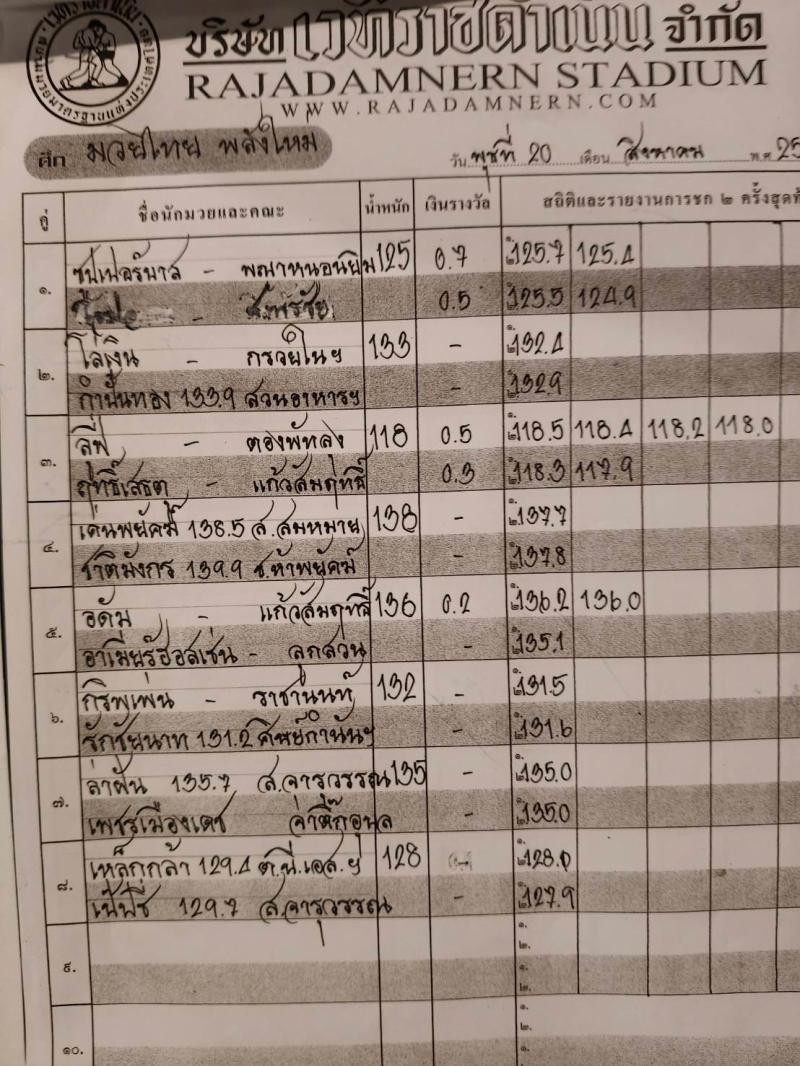 บริษัท เวทีราชดำเนิน จำกัด
RAJADAMNERN STADIUM
WWW.RAJADAMNERN.COM
ศึก มวยไทย พลังใหม่ วัน พุธที่ 20 เดือน สิงหาคม พ.ศ 25
คู่ ชื่อนักมวยและคณะ น้ำหนัก เงินรางวัล สถิติและรายงานการชก ๒ ครั้งสุดท้
๑. ซุปเปอร์บาส - พณาหนอนิยม 125 0.7 125.7 125.4
- ส.พรชัย 0.5 125.5 124.9
๒. โล่เงิน - กรวยในฯ 133 - 132.4
กำปั่นทอง 133.9 สวนอาหารฯ - 132.9
๓. ลีฟ - ตองพัทลุง 118 0.5 118.5 118.4 118.2 118.0
ฤทธิ์เสธต - แก้วสัมฤทธิ์ 0.3 118.3 117.9
๔. เด่นพยัคฆ์ 138.5 ส.สมหมาย 138 - 137.7
ชาติมังกร 139.9 ช.ห้าพยัคฆ์ - 137.8
๕. อดัม - แก้วสัมฤทธิ์ 136 0.2 136.2 136.0
อาเมียร์ฮอสเซ่น - ลูกสวน - 135.1
๖. กริพเพน - ราชานนท์ 132 - 131.5
รักชัยนาท 131.2 ศิษย์กำนันฯ - 131.6
๗. ล่าฝัน 135.7 ส.จารุวรรณ 135 - 135.0
เพชรเมืองเดช จ่าติ๊กอุบล - 135.0
๘. เหล็กกล้า 129.4 ต.บี.เอส.ฯ 128 128.0
เป๊ปซี่ 129.7 ส.จารุวรรณ - 127.9
๙.
๑๐.